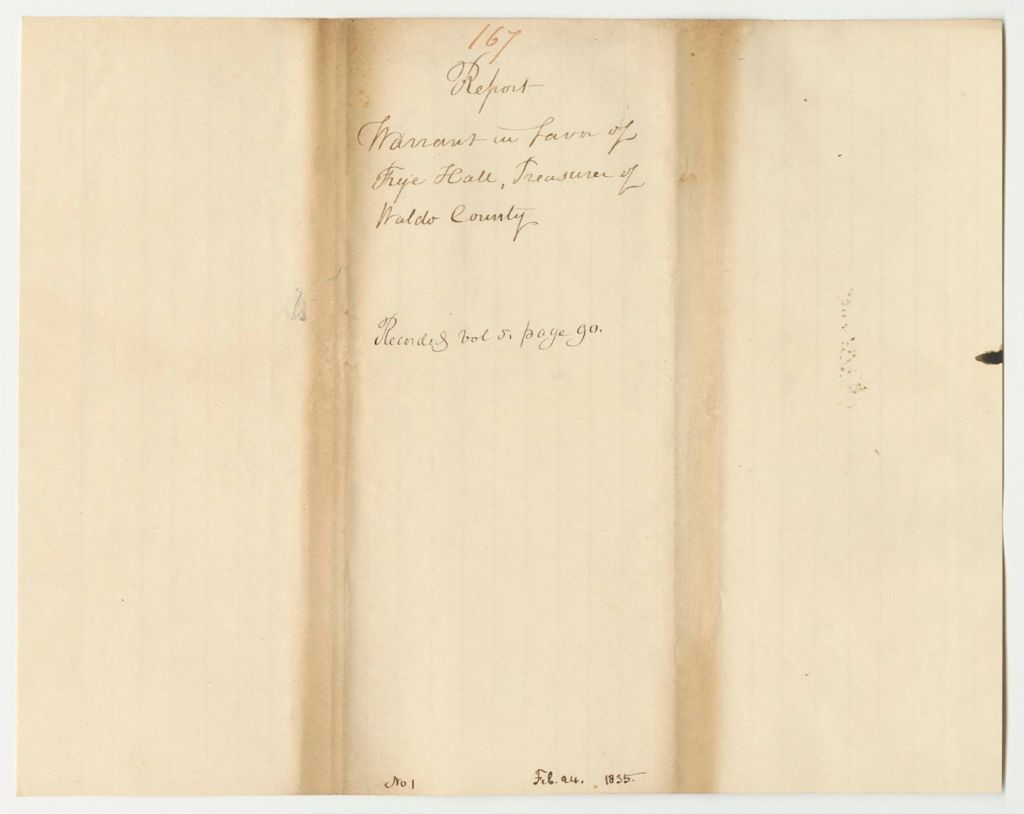 167
Report
Warrant in favor of
Frye Hall, Treasurer of
Waldo County
Recorded vol 5. page 90.
No 1 Feb. 24. 1835.